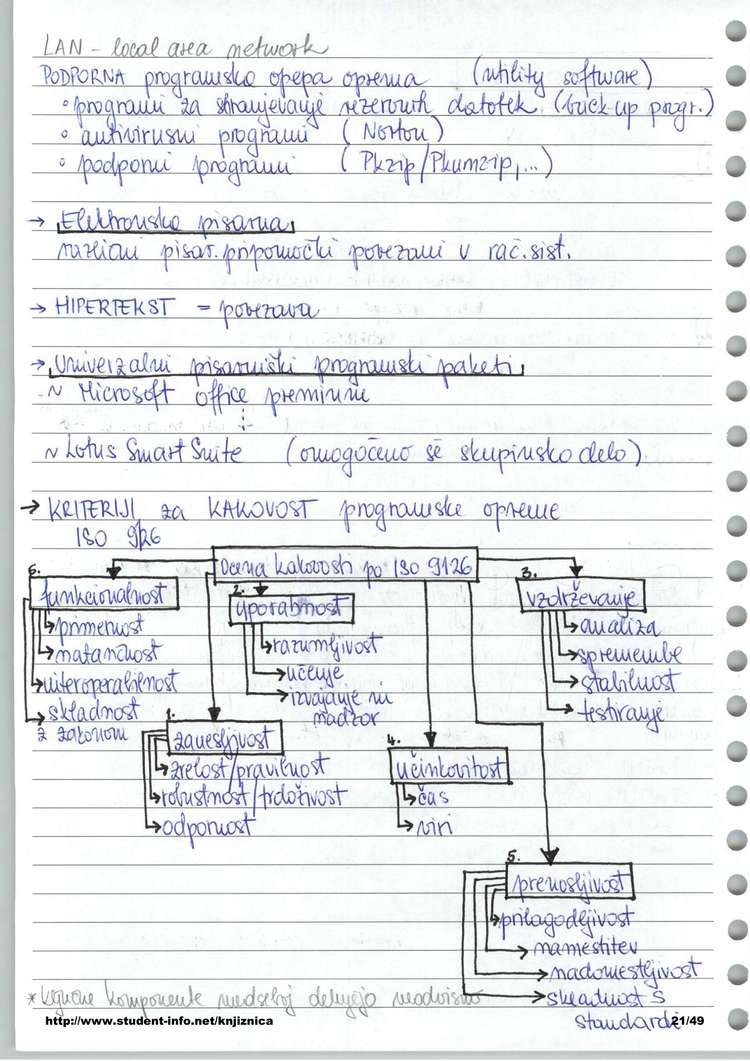 LAN - local area network
PODPORNA programska opepa oprema (utility software)
• programi za shranjevanje rezervnih datotek (back-up progr.)
• antivirusni programi (Norton)
• podporni programi (Pkzip/Pkunzip,...)
→ Elektronska pisarna
različni pisar. pripomočki povezani v rač. sist.
→ HIPERTEKST = povezava
→ Univerzalni pisarniški programski paketi
~ Microsoft office premium
~ Lotus SmartSuite (omogočeno še skupinsko delo)
→ KRITERIJI za KAKOVOST programske opreme
ISO 9126
Ocena kakovosti po ISO 9126
6. funkcionalnost
primernost
natančnost
interoperabilnost
skladnost
z zakonom
2. uporabnost
razumljivost
učenje
izvajanje in
nadzor
3. vzdrževanje
analiza
spremembe
stabilnost
testiranje
1. zanesljivost
zrelost/pravilnost
robustnost/trdoživost
odpornost
4. učinkovitost
čas
viri
5. prenosljivost
prilagodljivost
namestitev
nadomestljivost
skladnost s
standardi
* ključne komponente medseboj delujejo neodvisno
http://www.student-info.net/knjiznica
21/49